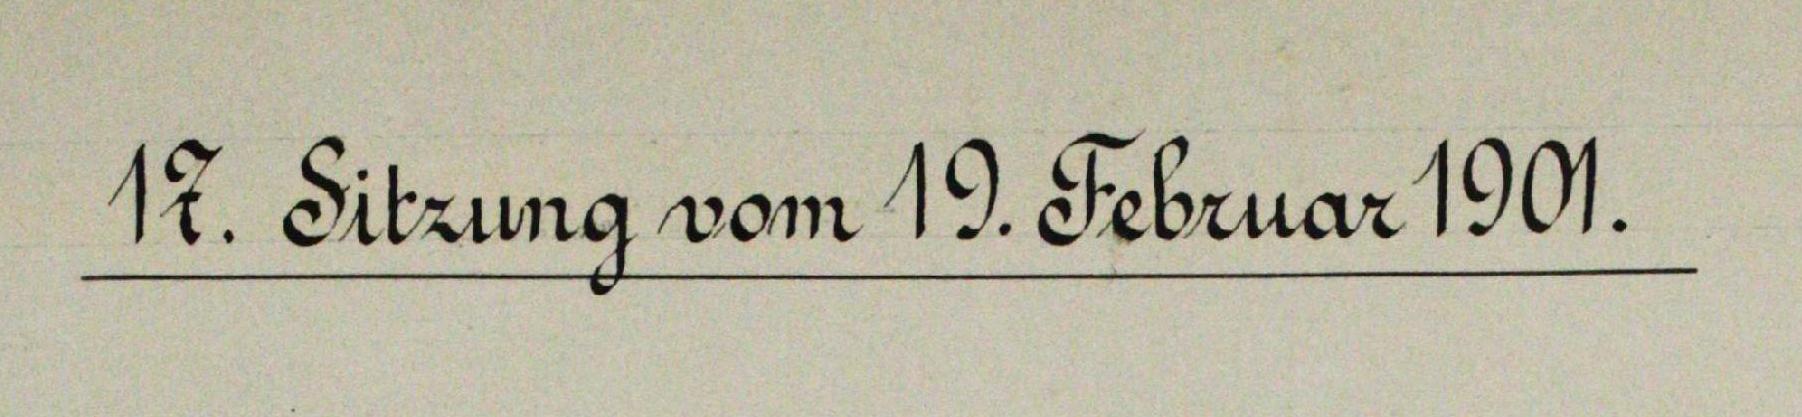 17. Sitzung vom 19. Februar 1901.